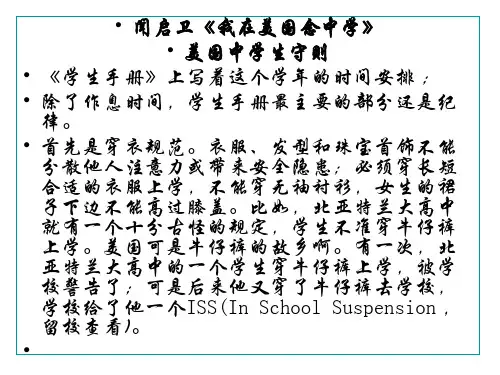 • 闻启卫《我在美国念中学》
• 美国中学生守则
• 《学生手册》上写着这个学年的时间安排；
• 除了作息时间，学生手册最主要的部分还是纪
律。
• 首先是穿衣规范。衣服、发型和珠宝首饰不能
分散他人注意力或带来安全隐患；必须穿长短
合适的衣服上学，不能穿无袖衬衫，女生的裙
子下边不能高过膝盖。比如，北亚特兰大高中
就有一个十分古怪的规定，学生不准穿牛仔裤
上学。美国可是牛仔裤的故乡啊。有一次，北
亚特兰大高中的一个学生穿牛仔裤上学，被学
校警告了；可是后来他又穿了牛仔裤去学校，
学校给了他一个ISS(In School Suspension，
留校查看)。
•